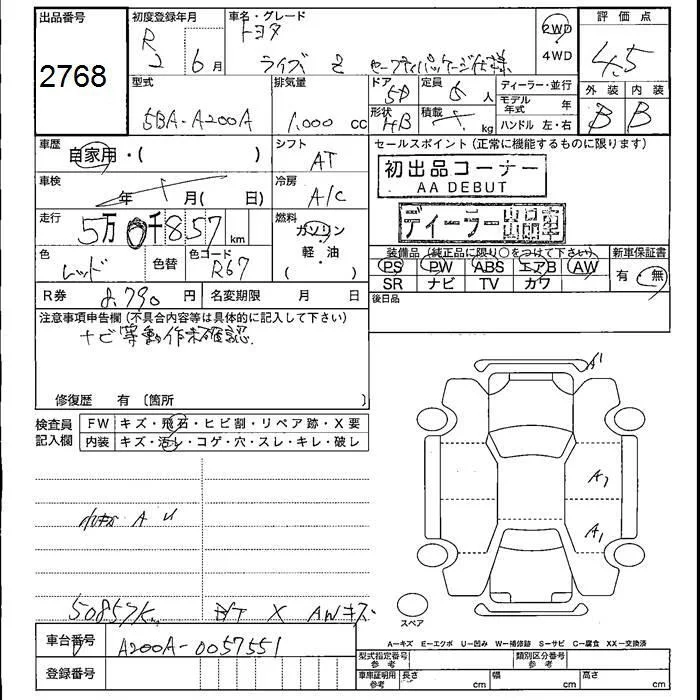 出品番号
2768
初度登録年月
R2 6月
車名・グレード
トヨタ
ライズ Z セーフティパッケージ仕様
2WD
4WD
評価点
4.5
外装 内装
B B
型式
5BA-A200A
排気量
1,000 cc
ドア
5D
形状
HB
定員
人
積載
kg
ディーラー・並行
モデル年式 年
ハンドル 左・右
車歴
自家用・( )
シフト
AT
車検
年 月( 日)
冷房
A/C
走行
5万0千857km
燃料
ガソリン
軽・油
( )
色
レッド
色替
色コード
R67
R券 8,790円
名変期限 月 日
セールスポイント(正常に機能するものに限ります)
初出品コーナー
AA DEBUT
ディーラー出品車
装備品(純正品に限り○をつけて下さい)
PS PW ABS エアB AW
SR ナビ TV カワ
新車保証書
有・無
後日品
注意事項申告欄(不具合内容等は具体的に記入して下さい)
ナビ等動作未確認
修復歴 有〔箇所
検査員記入欄
FW キズ・飛石・ヒビ割・リペア跡・X要
内装 キズ・汚レ・コゲ・穴・スレ・キレ・破レ
A U
50857km
X AWキズ
A1
A1
スペア
A-キズ E-エクボ U-凹み W-補修跡 S-サビ C-腐食 XX-交換済
車台番号
A200A-0057551
登録番号
型式指定番号 参考
類別区分番号 参考
車庫証明用 参考
長さ cm
幅 cm
高さ cm